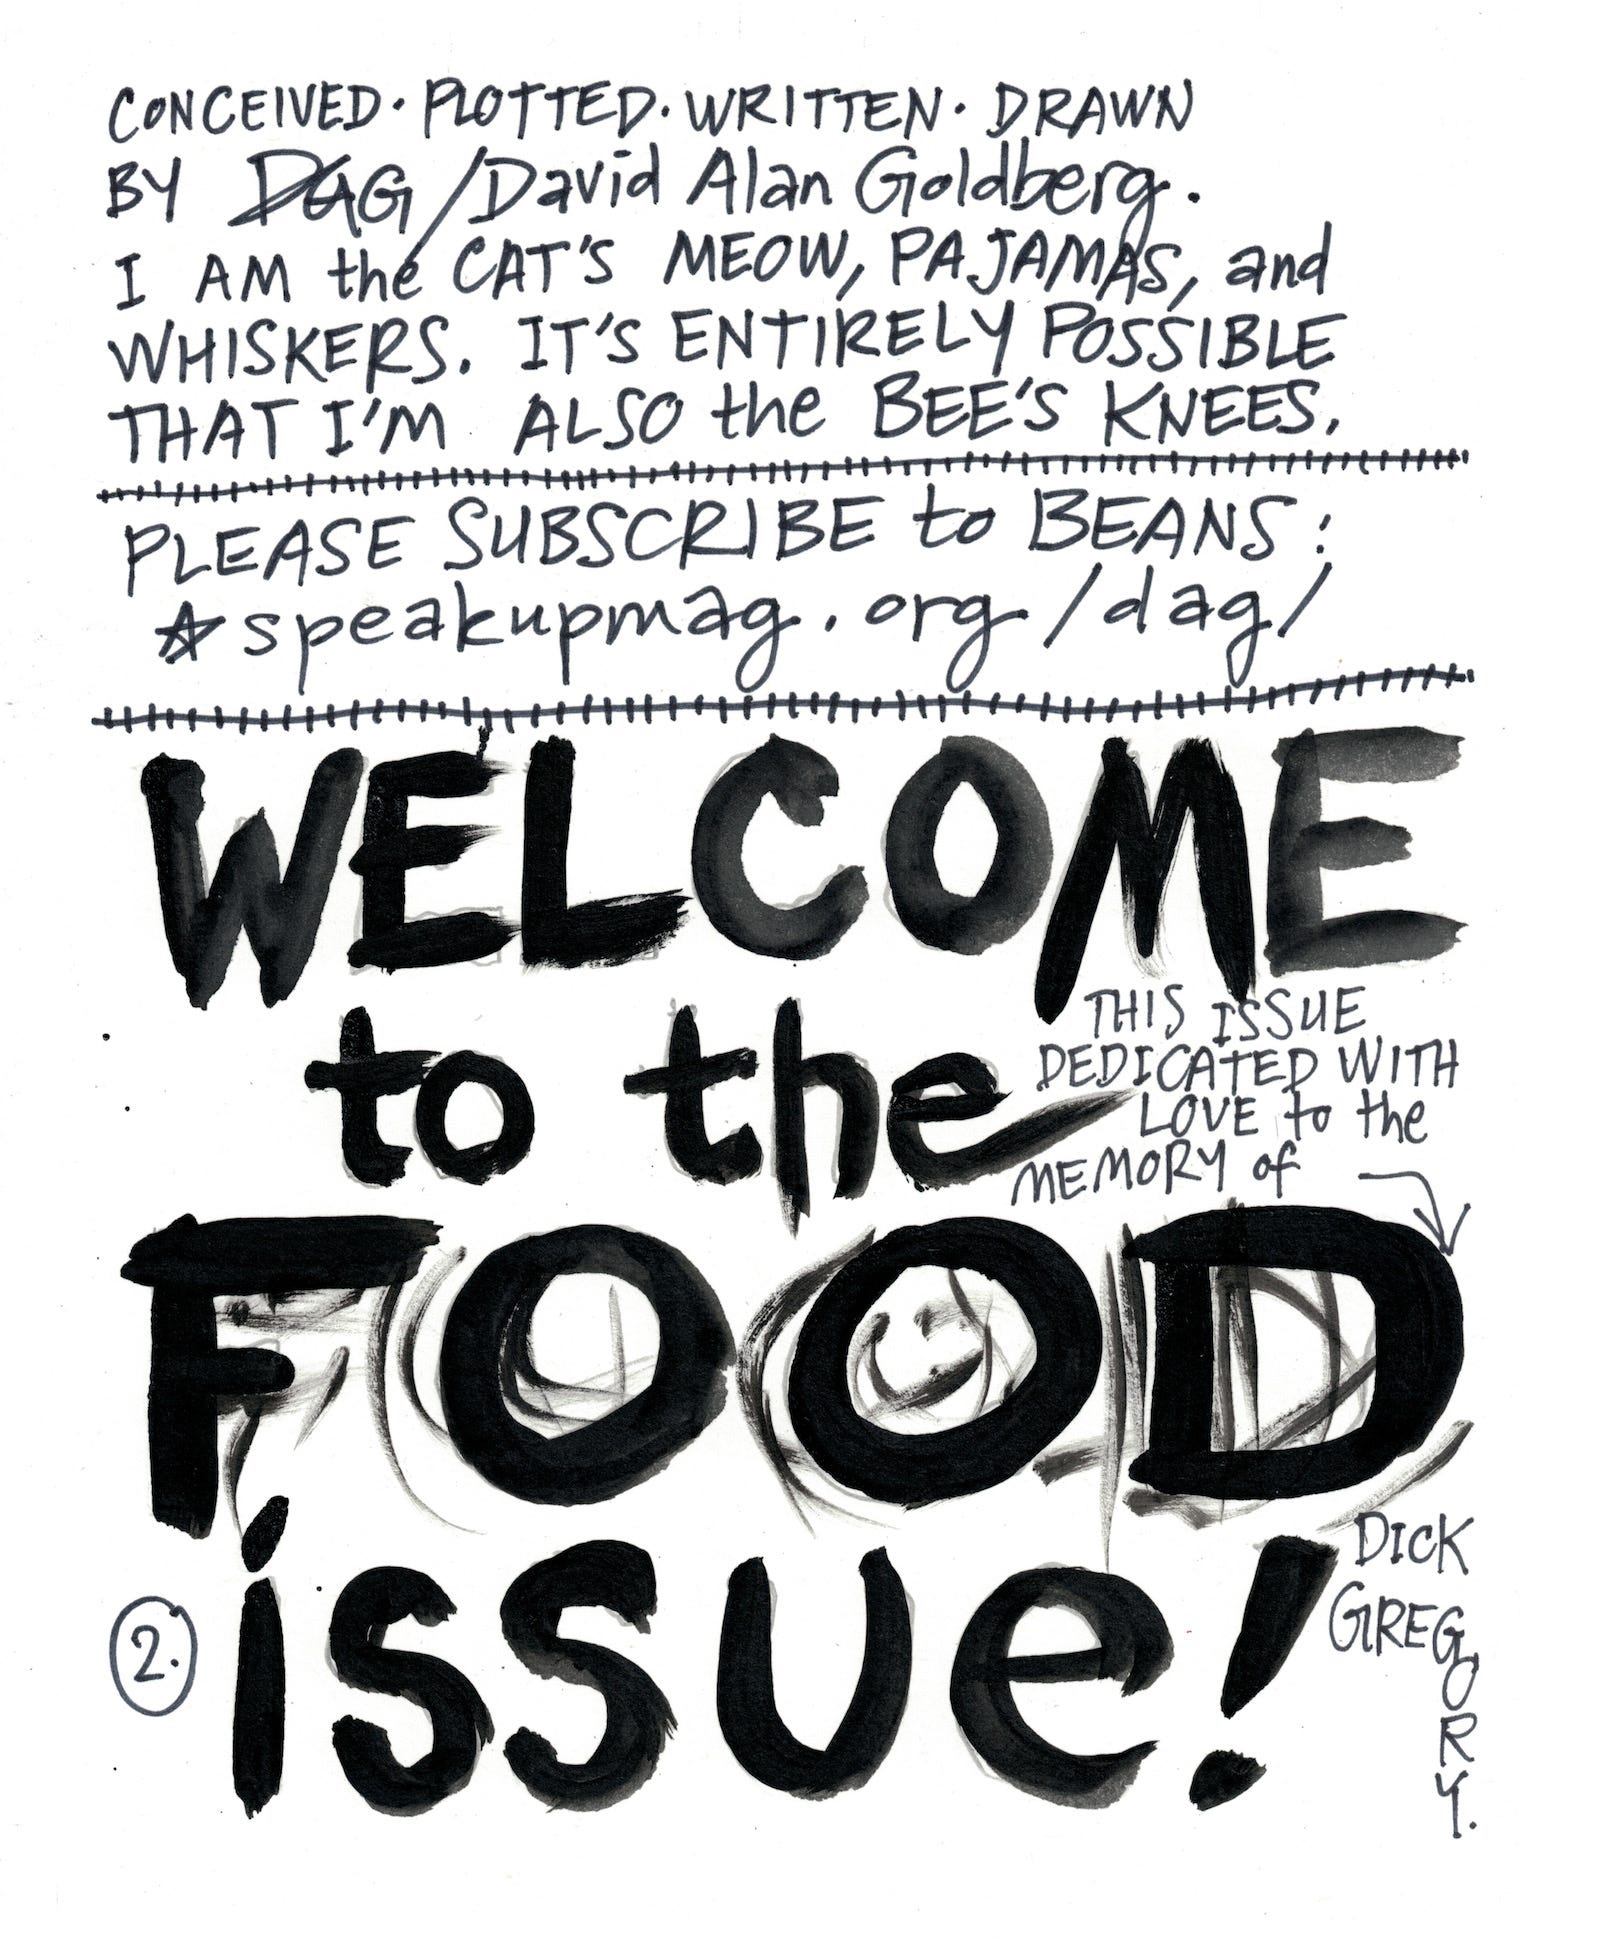 CONCEIVED · PLOTTED · WRITTEN · DRAWN
BY DAG / David Alan Goldberg.
I AM the CAT'S MEOW, PAJAMAS, and
WHISKERS. IT'S ENTIRELY POSSIBLE
THAT I'M ALSO the BEE'S KNEES.
PLEASE SUBSCRIBE to BEANS:
☆ speakupmag.org/dag/
WELCOME
to the
THIS ISSUE
DEDICATED WITH
LOVE to the
MEMORY of
FOOD
issue!
DICK
GREGORY.
2.